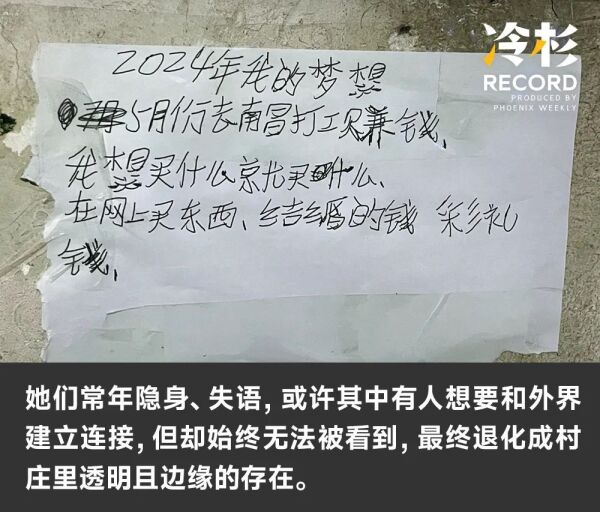 冷杉
RECORD
PRODUCED BY
PHOENIX WEEKLY
2024年我的梦想
5月份去南昌打工赚钱、
我想买什么就买什么、
在网上买东西、结婚的钱 彩礼
钱、
她们常年隐身、失语，或许其中有人想要和外界
建立连接，但却始终无法被看到，最终退化成村
庄里透明且边缘的存在。